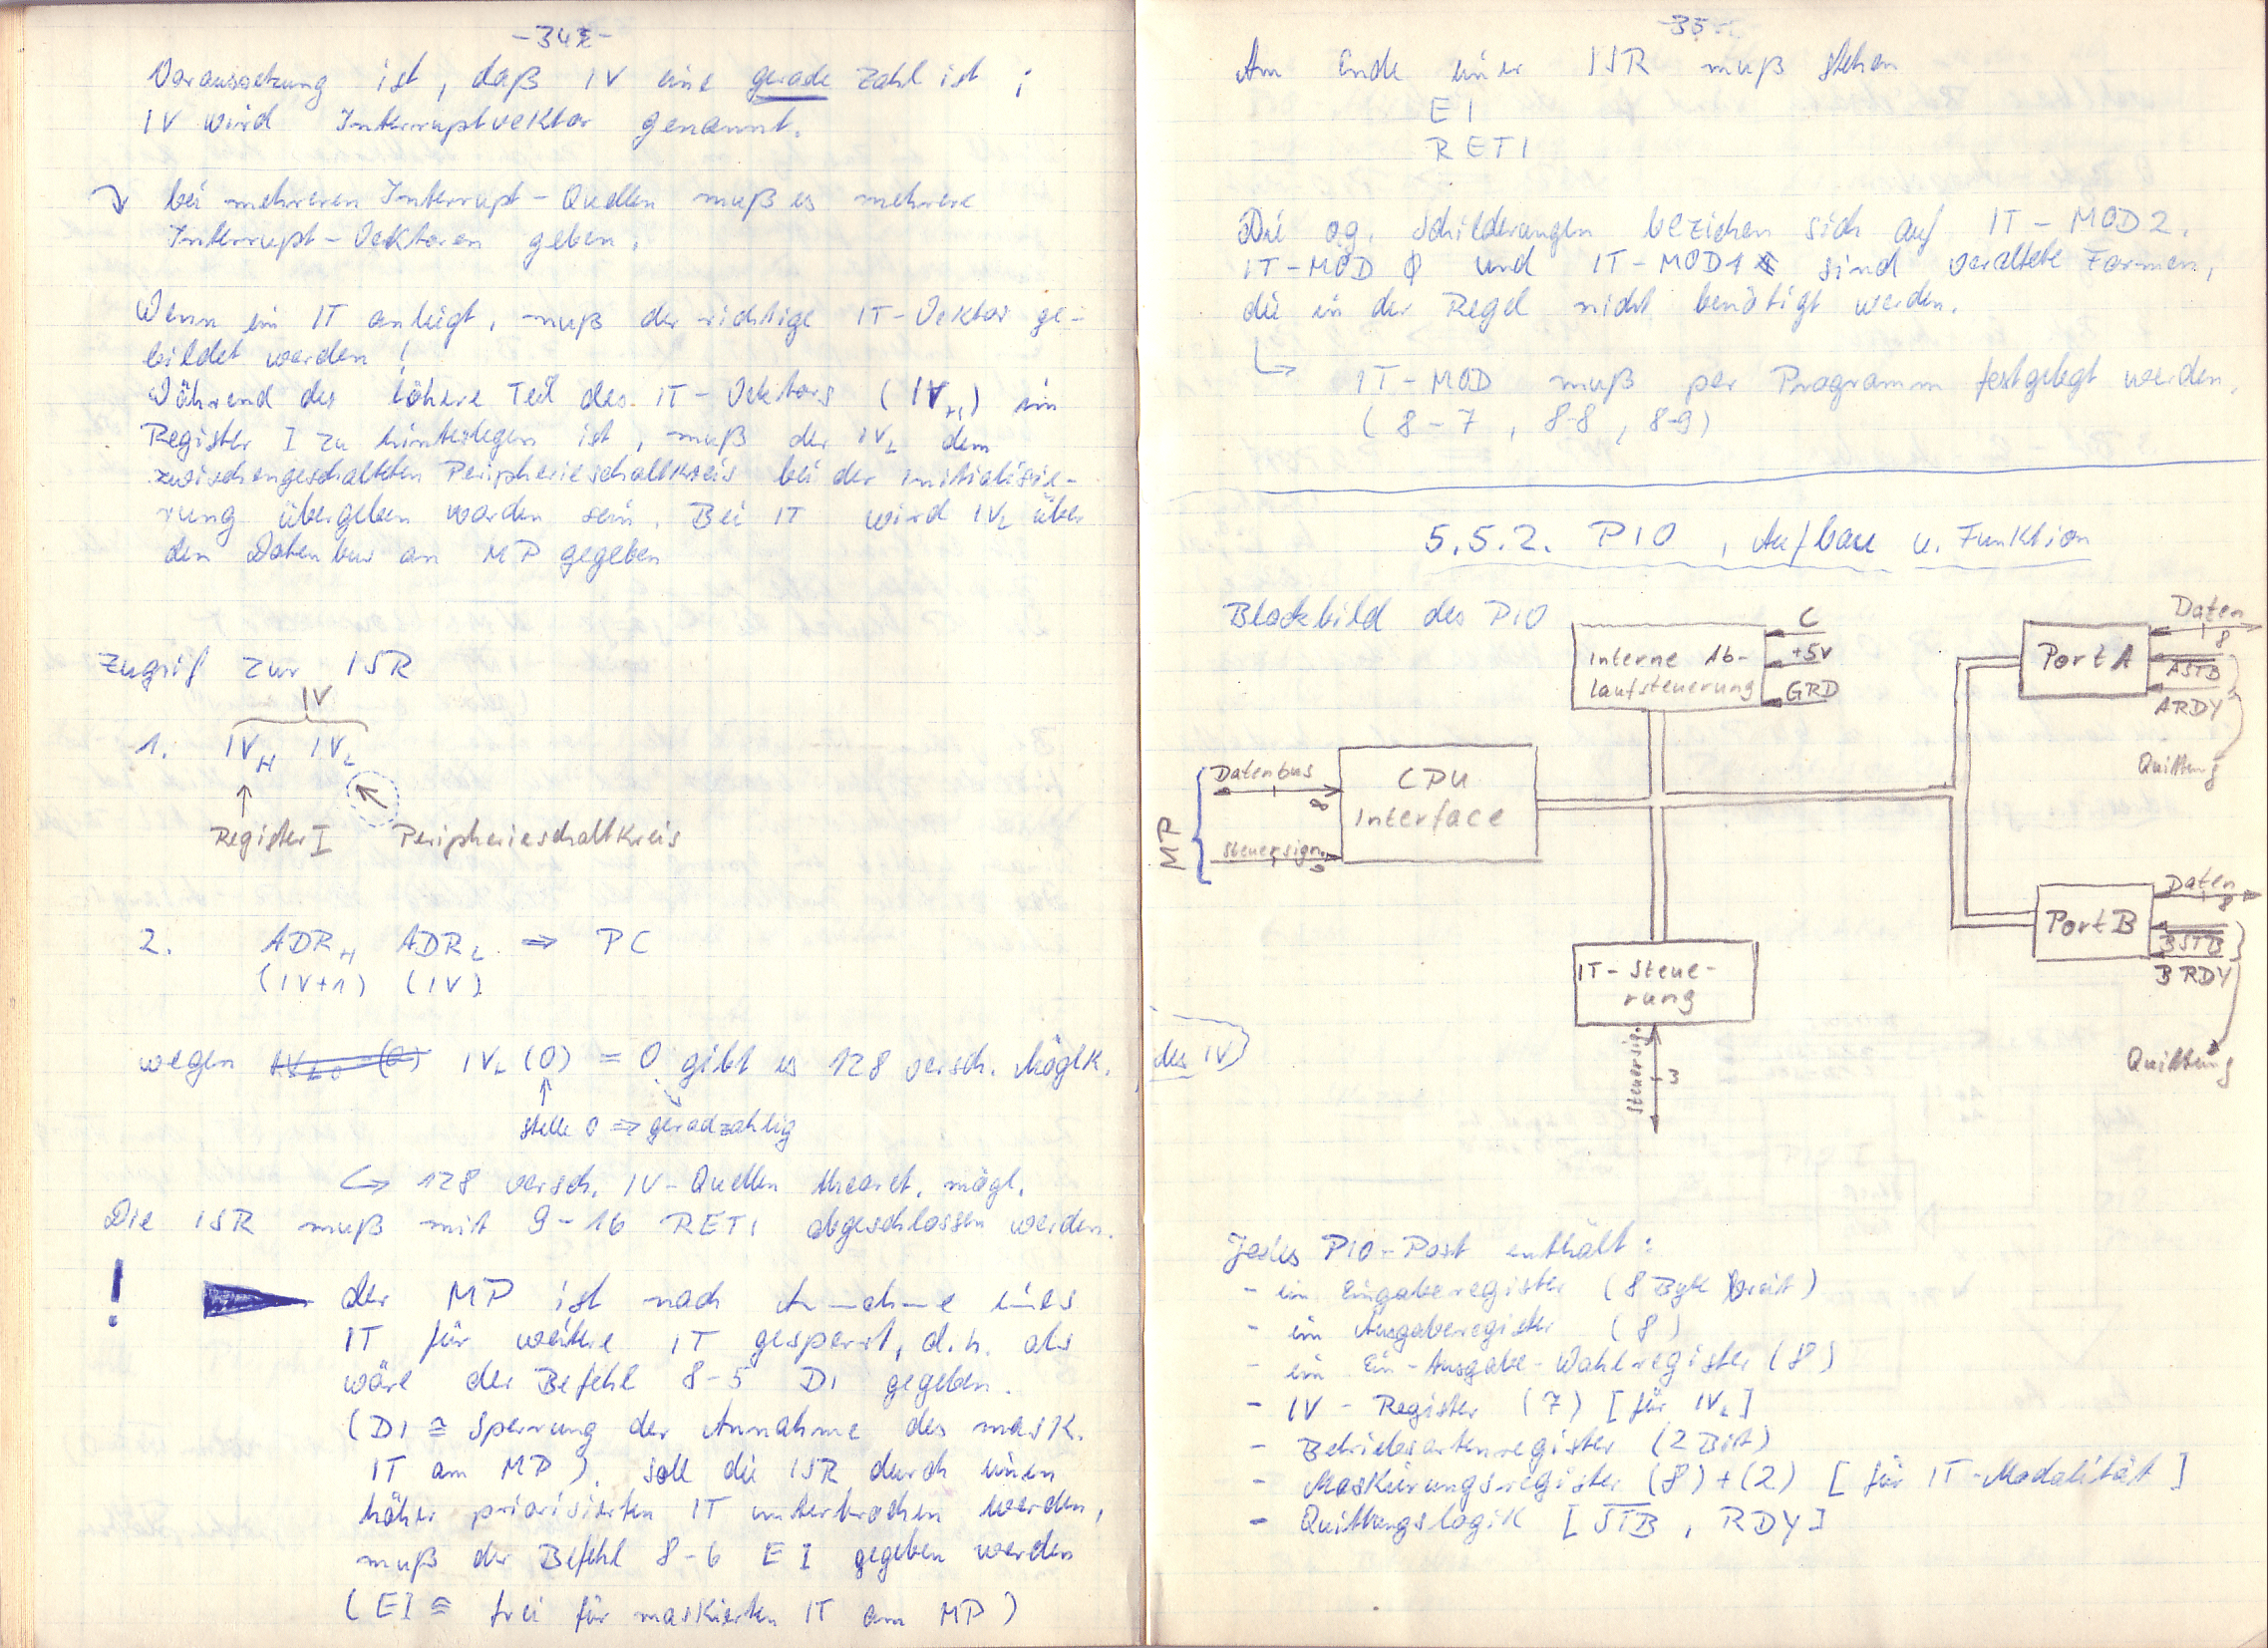 -34-
Voraussetzung ist, daß IV eine gerade Zahl ist ;
IV wird Interruptvektor genannt.
bei mehreren Interrupt-Quellen muß es mehrere
Interrupt-Vektoren geben.
Wenn ein IT anliegt, muß der richtige IT-Vektor ge-
bildet werden !
Während der höhere Teil des IT-Vektors (IV_H) im
Register I zu hinterlegen ist, muß der IV_L dem
zwischengeschalteten Peripherieschaltkreis bei der Initialisie-
rung übergeben worden sein. Bei IT wird IV_L über
den Datenbus an MP gegeben
Zugrif zur ISR
IV
1. IV_H IV_L
↑
Register I Peripherieschaltkreis
2. ADR_H ADR_L ⇒ PC
(IV+1) (IV)
wegen IV_L (0) = 0 gibt es 128 versch. Möglk. des IV
↑
Stelle 0 ⇒ geradzahlig
↪ 128 versch. IV-Quellen theoret. mögl.
Die ISR muß mit 9-16 RETI abgeschlossen werden.
! der MP ist nach Annahme eines
IT für weitere IT gesperrt, d.h. als
wäre der Befehl 8-5 DI gegeben.
(DI ≙ Sperrung der Annahme des mask.
IT am MP). Soll die ISR durch einen
höher priorisierten IT unterbrochen werden,
muß der Befehl 8-6 EI gegeben werden
(EI ≙ frei für maskierten IT am MP)
-35-
Am Ende einer ISR muß stehen
EI
RETI
Die o.g. Schilderungen beziehen sich auf IT-MOD2.
IT-MOD 0 und IT-MOD1 sind veraltete Formen,
die in der Regel nicht benötigt werden.
↳ IT-MOD muß per Programm festgelegt werden.
(8-7, 8-8, 8-9)
5.5.2. PIO, Aufbau u. Funktion
Blockbild des PIO
Interne Ab-
laufsteuerung
C
+5V
GRD
Port A
Daten
8
ASTB
ARDY
Quittung
MP
Datenbus
8
Steuersign.
CPU
Interface
Port B
Daten
8
BSTB
BRDY
Quittung
IT-Steue-
rung
Steuersig.
3
Jedes PIO-Port enthält:
- ein Eingaberegister (8 Byte breit)
- ein Ausgaberegister (8)
- ein Ein-Ausgabe-Wahlregister (8)
- IV-Register (7) [für IV_L]
- Betriebsartenregister (2 Bit)
- Maskierungsregister (8)+(2) [für IT-Modalität]
- Quittungslogik [STB, RDY]